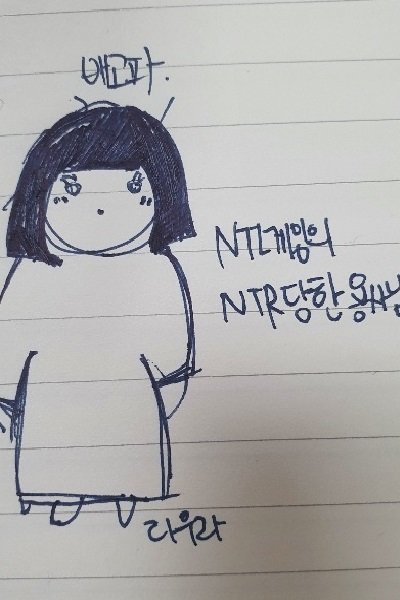 배고파.
NTL게임의
NTR당한 용사님
라우라